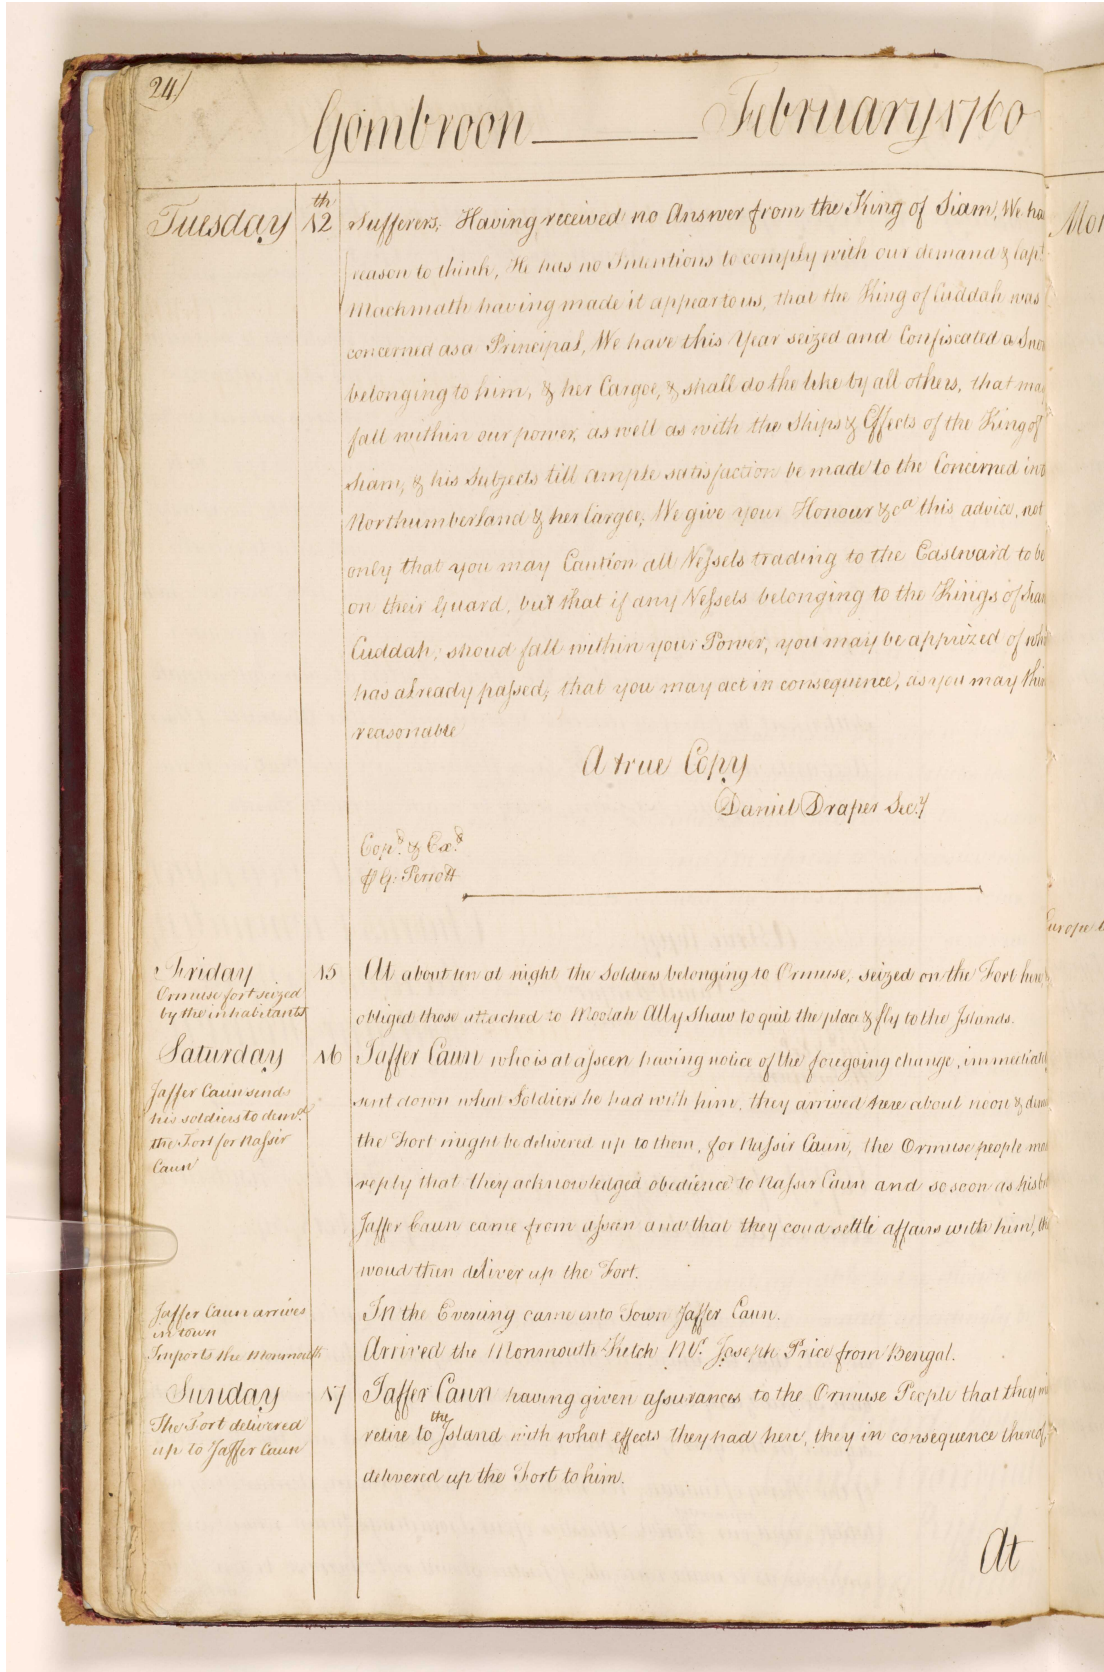 24
Gombroon February 1760
Tuesday 12th Sufferers, Having received no Answer from the King of Siam, We ha
reason to think, He has no Intentions to comply with our demand & Capt.
Mackmath having made it appear to us, that the King of Cuddah was
concerned as a Principal, We have this Year seized and Confiscated a Snow
belonging to him, & her Cargoe, & shall do the like by all others, that may
fall within our power, as well as with the Ships & Effects of the King of
Siam, & his Subjects till ample satisfaction be made to the Concerned in
Northumberland & her Cargoe; We give your Honour &ca this advice, not
only that you may Caution all Vessels trading to the Eastward to be
on their Guard, but that if any Vessels belonging to the Kings of Siam
Cuddah, shoud fall within your Power, you may be apprized of wh
has already passed, that you may act in consequence, as you may think
reasonable
A true Copy
Daniel Draper Secy
Copd. & Exd.
P G: Perrott
Europe
Friday 15 At about ten at night the Soldiers belonging to Ormuse, seized on the Fort here,
Ormuse fort seized
by the inhabitants
obliged those attached to Moolah Ally Shaw to quit the place & fly to the Islands.
Saturday 16 Jaffer Caun who is at Asseen having notice of the foregoing change, immediate
Jaffer Caun sends
his soldiers to demd.
the Fort for Nassir
Caun
sent down what Soldiers he had with him, they arrived here about noon & dem
the Fort might be delivered up to them, for Nassir Caun, the Ormuse people ma
reply that they acknowledged obedience to Nassir Caun and so soon as his b
Jaffer Caun came from Asseen and that they coud settle affairs with him, th
woud then deliver up the Fort.
Jaffer Caun arrives
in town
In the Evening came into Town Jaffer Caun.
Imports the Monmouth
Arrived the Monmouth Ketch Mr. Joseph Price from Bengal.
Sunday 17 Jaffer Caun having given assurances to the Ormuse People that they
The Fort delivered
up to Jaffer Caun
retire to the Island with what effects they had here, they in consequence thereof
delivered up the Fort to him.
At